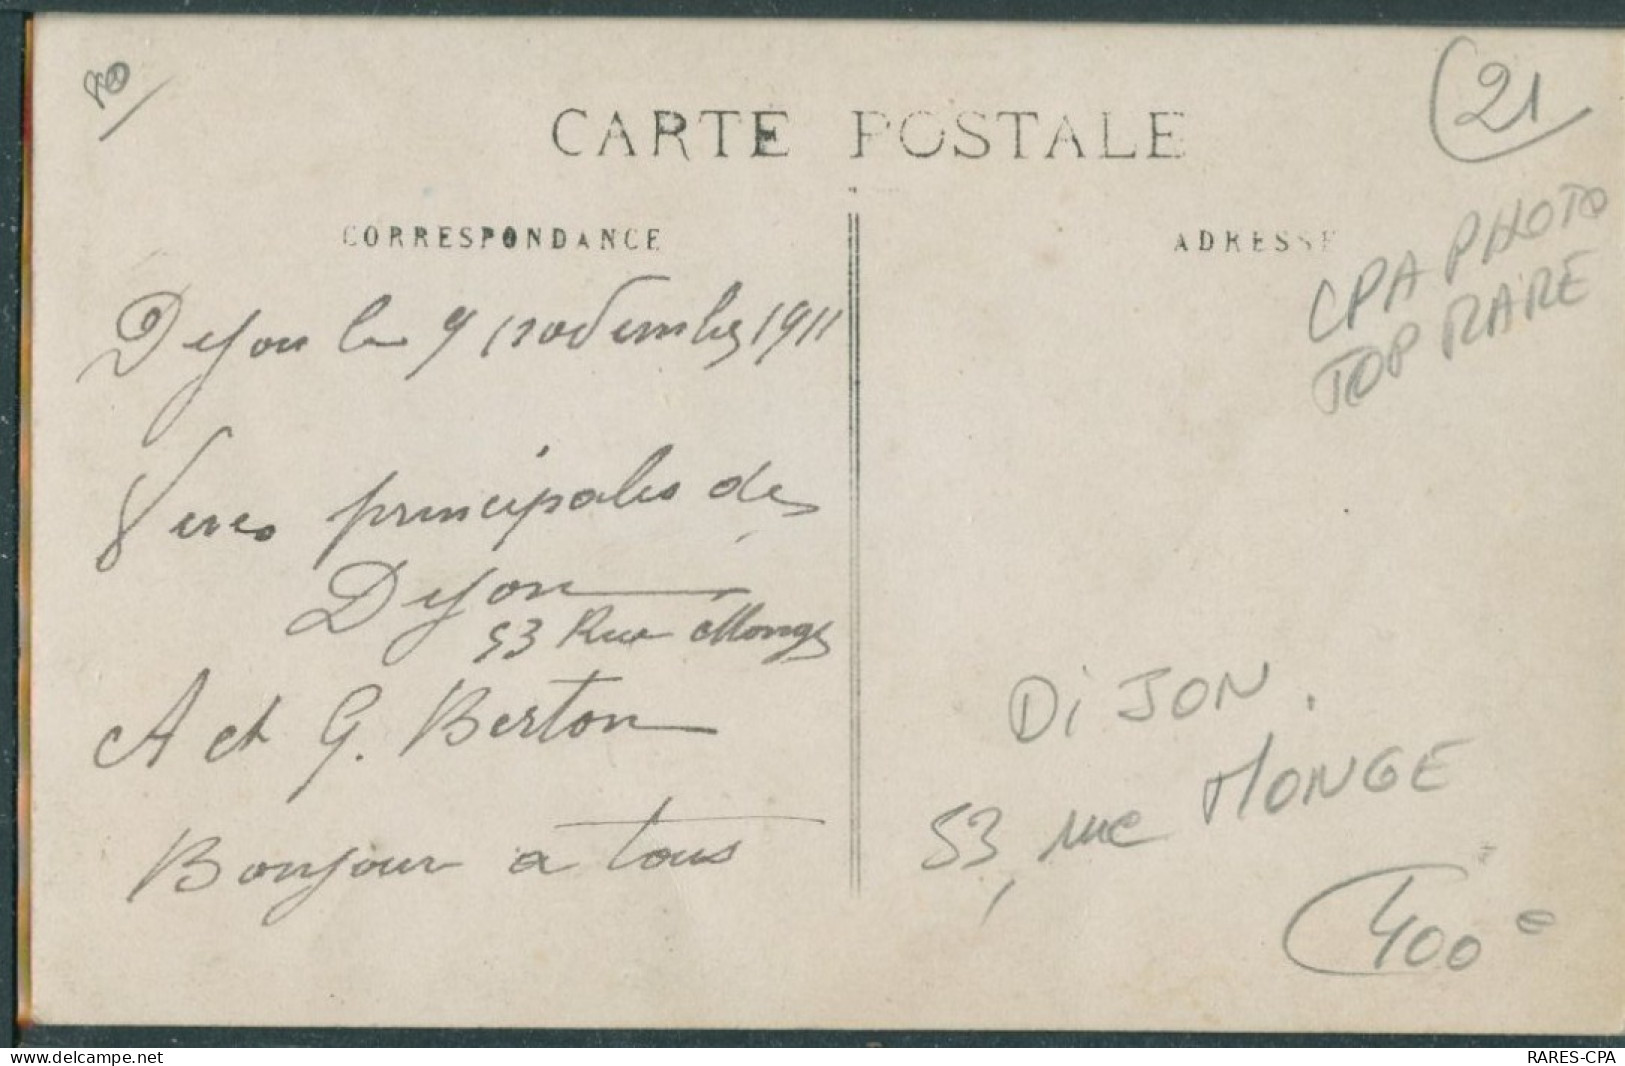 21
CARTE POSTALE
CPA PHOTO
TOP RARE
CORRESPONDANCE
ADRESSE
Dijon le 9 novembre 1911
Vues principales de
Dijon
53 Rue Monge
A et G. Berton
Bonjour a tous
DIJON.
53, rue MONGE
400 €
www.delcampe.net
RARES-CPA